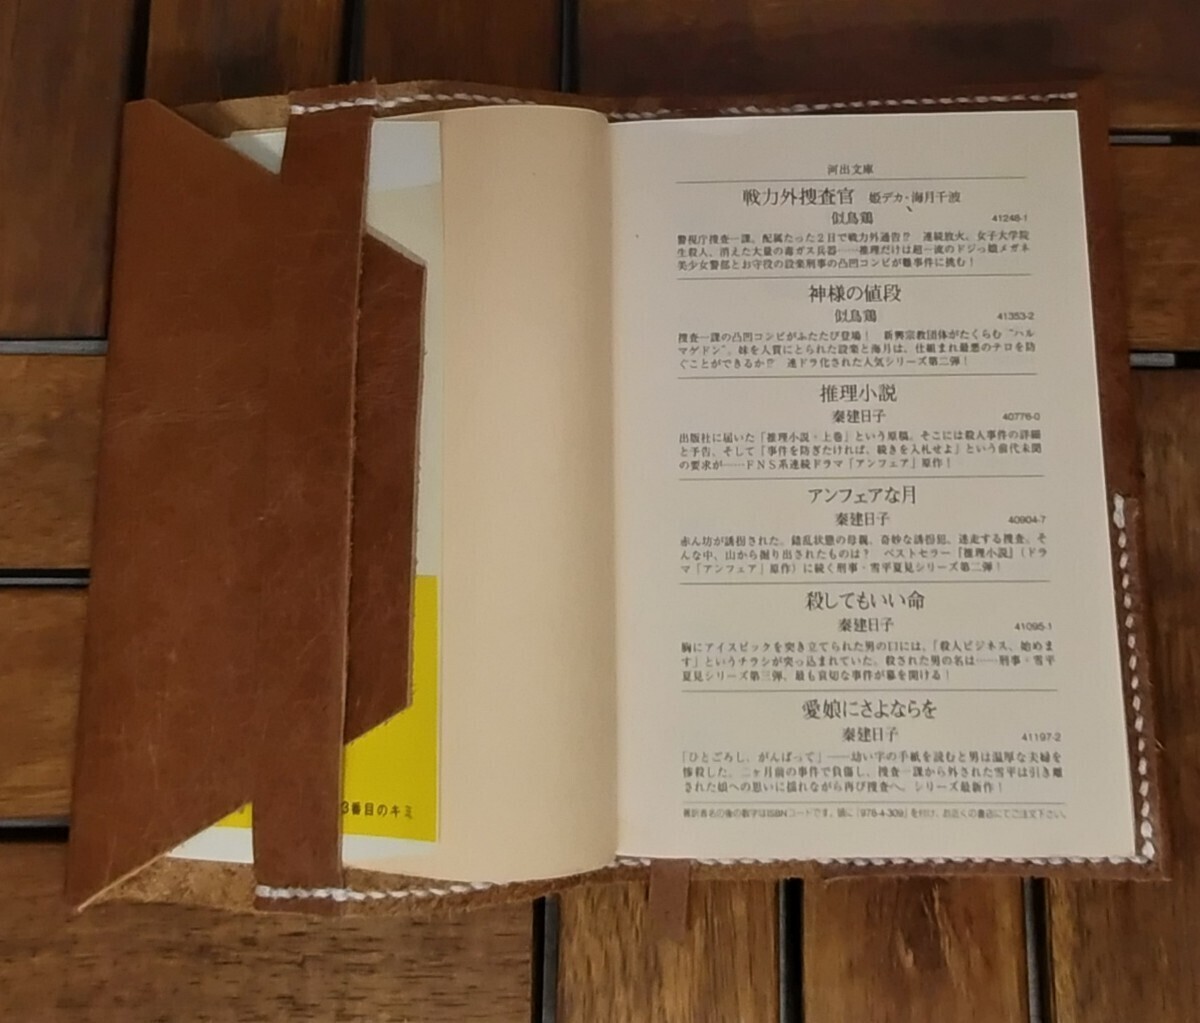 河出文庫
戦力外捜査官 姫デカ・海月千波
似鳥鶏
41248-1
警視庁捜査一課、配属たった2日で戦力外通告!? 連続放火、女子大学院
生殺人、消えた大量の毒ガス兵器……推理だけは超一流のドジっ娘メガネ
美少女警部とお守役の設楽刑事の凸凹コンビが難事件に挑む！
神様の値段
似鳥鶏
41353-2
捜査一課の凸凹コンビがふたたび登場！ 新興宗教団体がたくらむ“ハル
マゲドン”。妹を人質にとられた設楽と海月は、仕組まれ最悪のテロを防
ぐことができるか!? 連ドラ化された人気シリーズ第二弾！
推理小説
秦建日子
40776-0
出版社に届いた「推理小説・上巻」という原稿。そこには殺人事件の詳細
と予告、そして「事件を防ぎたければ、続きを入札せよ」という前代未聞
の要求が……FNS系連続ドラマ「アンフェア」原作！
アンフェアな月
秦建日子
40904-7
赤ん坊が誘拐された。錯乱状態の母親、奇妙な誘拐犯、迷走する捜査。そ
んな中、山から掘り出されたものは？ ベストセラー『推理小説』（ドラ
マ「アンフェア」原作）に続く刑事・雪平夏見シリーズ第二弾！
殺してもいい命
秦建日子
41095-1
胸にアイスピックを突き立てられた男の口には、「殺人ビジネス、始めま
す」というチラシが突っ込まれていた。殺された男の名は……刑事・雪平
夏見シリーズ第三弾、最も哀切な事件が幕を開ける！
愛娘にさよならを
秦建日子
41197-2
「ひとごろし、がんばって」――幼い字の手紙を読むと男は温厚な夫婦を
惨殺した。二ヶ月前の事件で負傷し、捜査一課から外された雪平は引き離
された娘への思いに揺れながら再び捜査へ。シリーズ最新作！
著訳者名の後の数字はISBNコードです。頭に「978-4-309」を付け、お近くの書店にてご注文下さい。
3番目のキミ